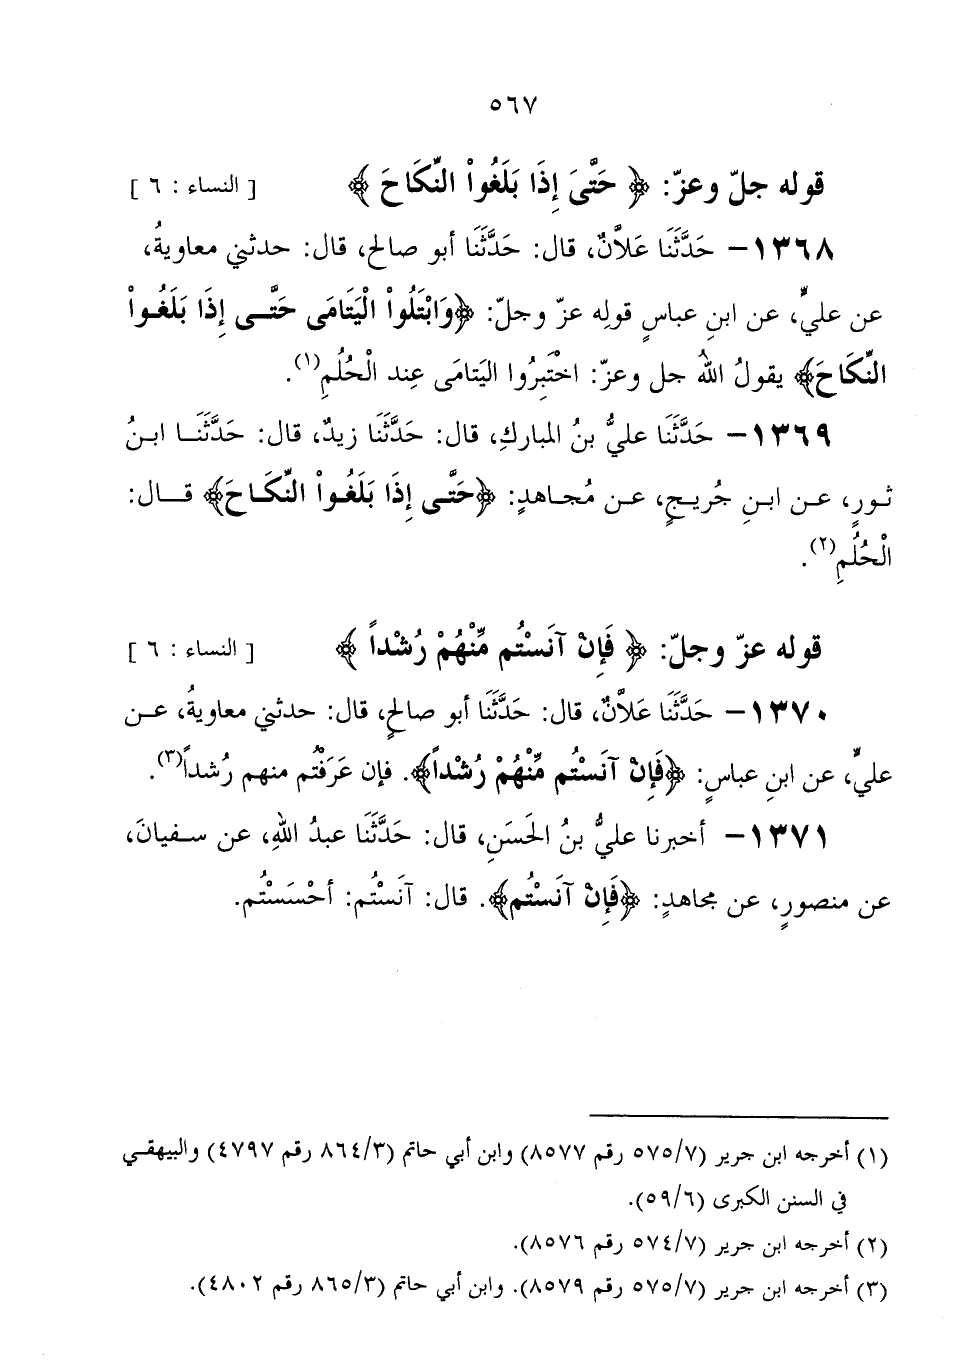 ٥٦٧
قوله جلّ وعزّ: ﴿ حَتَّىَ إِذَا بَلَغُواْ النِّكَاحَ ﴾ [ النساء : ٦ ]
١٣٦٨– حَدَّثَنَا عَلاَّنٌ، قال: حَدَّثَنَا أبو صالحٍ، قال: حدثني معاويةُ،
عن عليٍّ، عن ابنِ عباسٍ قولِه عزّ وجلّ: ﴿وَابْتَلُواْ الْيَتَامَى حَتَّى إِذَا بَلَغُواْ
النِّكَاحَ﴾ يقولُ اللهُ جل وعزّ: اخْتَبِرُوا اليَتامَى عِند الْحُلُمِ(١).
١٣٦٩– حَدَّثَنَا عليُّ بنُ المباركِ، قال: حَدَّثَنَا زيدٌ، قال: حَدَّثَنَا ابنُ
ثورٍ، عن ابنِ جُريجٍ، عن مُجاهدٍ: ﴿حَتَّى إِذَا بَلَغُواْ النِّكَاحَ﴾ قال:
الْحُلُمِ(٢).
قوله عزّ وجلّ: ﴿ فَإِنْ آنَسْتُم مِّنْهُمْ رُشْداً ﴾ [ النساء : ٦ ]
١٣٧٠– حَدَّثَنَا عَلاَّنٌ، قال: حَدَّثَنَا أبو صالحٍ، قال: حدثني معاويةُ، عن
عليٍّ، عن ابنِ عباسٍ: ﴿فَإِنْ آنَسْتُم مِّنْهُمْ رُشْداً﴾. فإن عَرَفْتُم منهم رُشداً(٣).
١٣٧١– أخبرنا عليُّ بنُ الحَسَنِ، قال: حَدَّثَنَا عبدُ اللهِ، عن سفيانَ،
عن منصورٍ، عن مجاهدٍ: ﴿فَإِنْ آنَسْتُم﴾. قال: آنَسْتُم: أحْسَسْتُم.
(١) أخرجه ابن جرير (٥٧٥/٧ رقم ٨٥٧٧) وابن أبي حاتم (٨٦٤/٣ رقم ٤٧٩٧) والبيهقي
في السنن الكبرى (٥٩/٦).
(٢) أخرجه ابن جرير (٥٧٤/٧ رقم ٨٥٧٦).
(٣) أخرجه ابن جرير (٥٧٥/٧ رقم ٨٥٧٩). وابن أبي حاتم (٨٦٥/٣ رقم ٤٨٠٢).